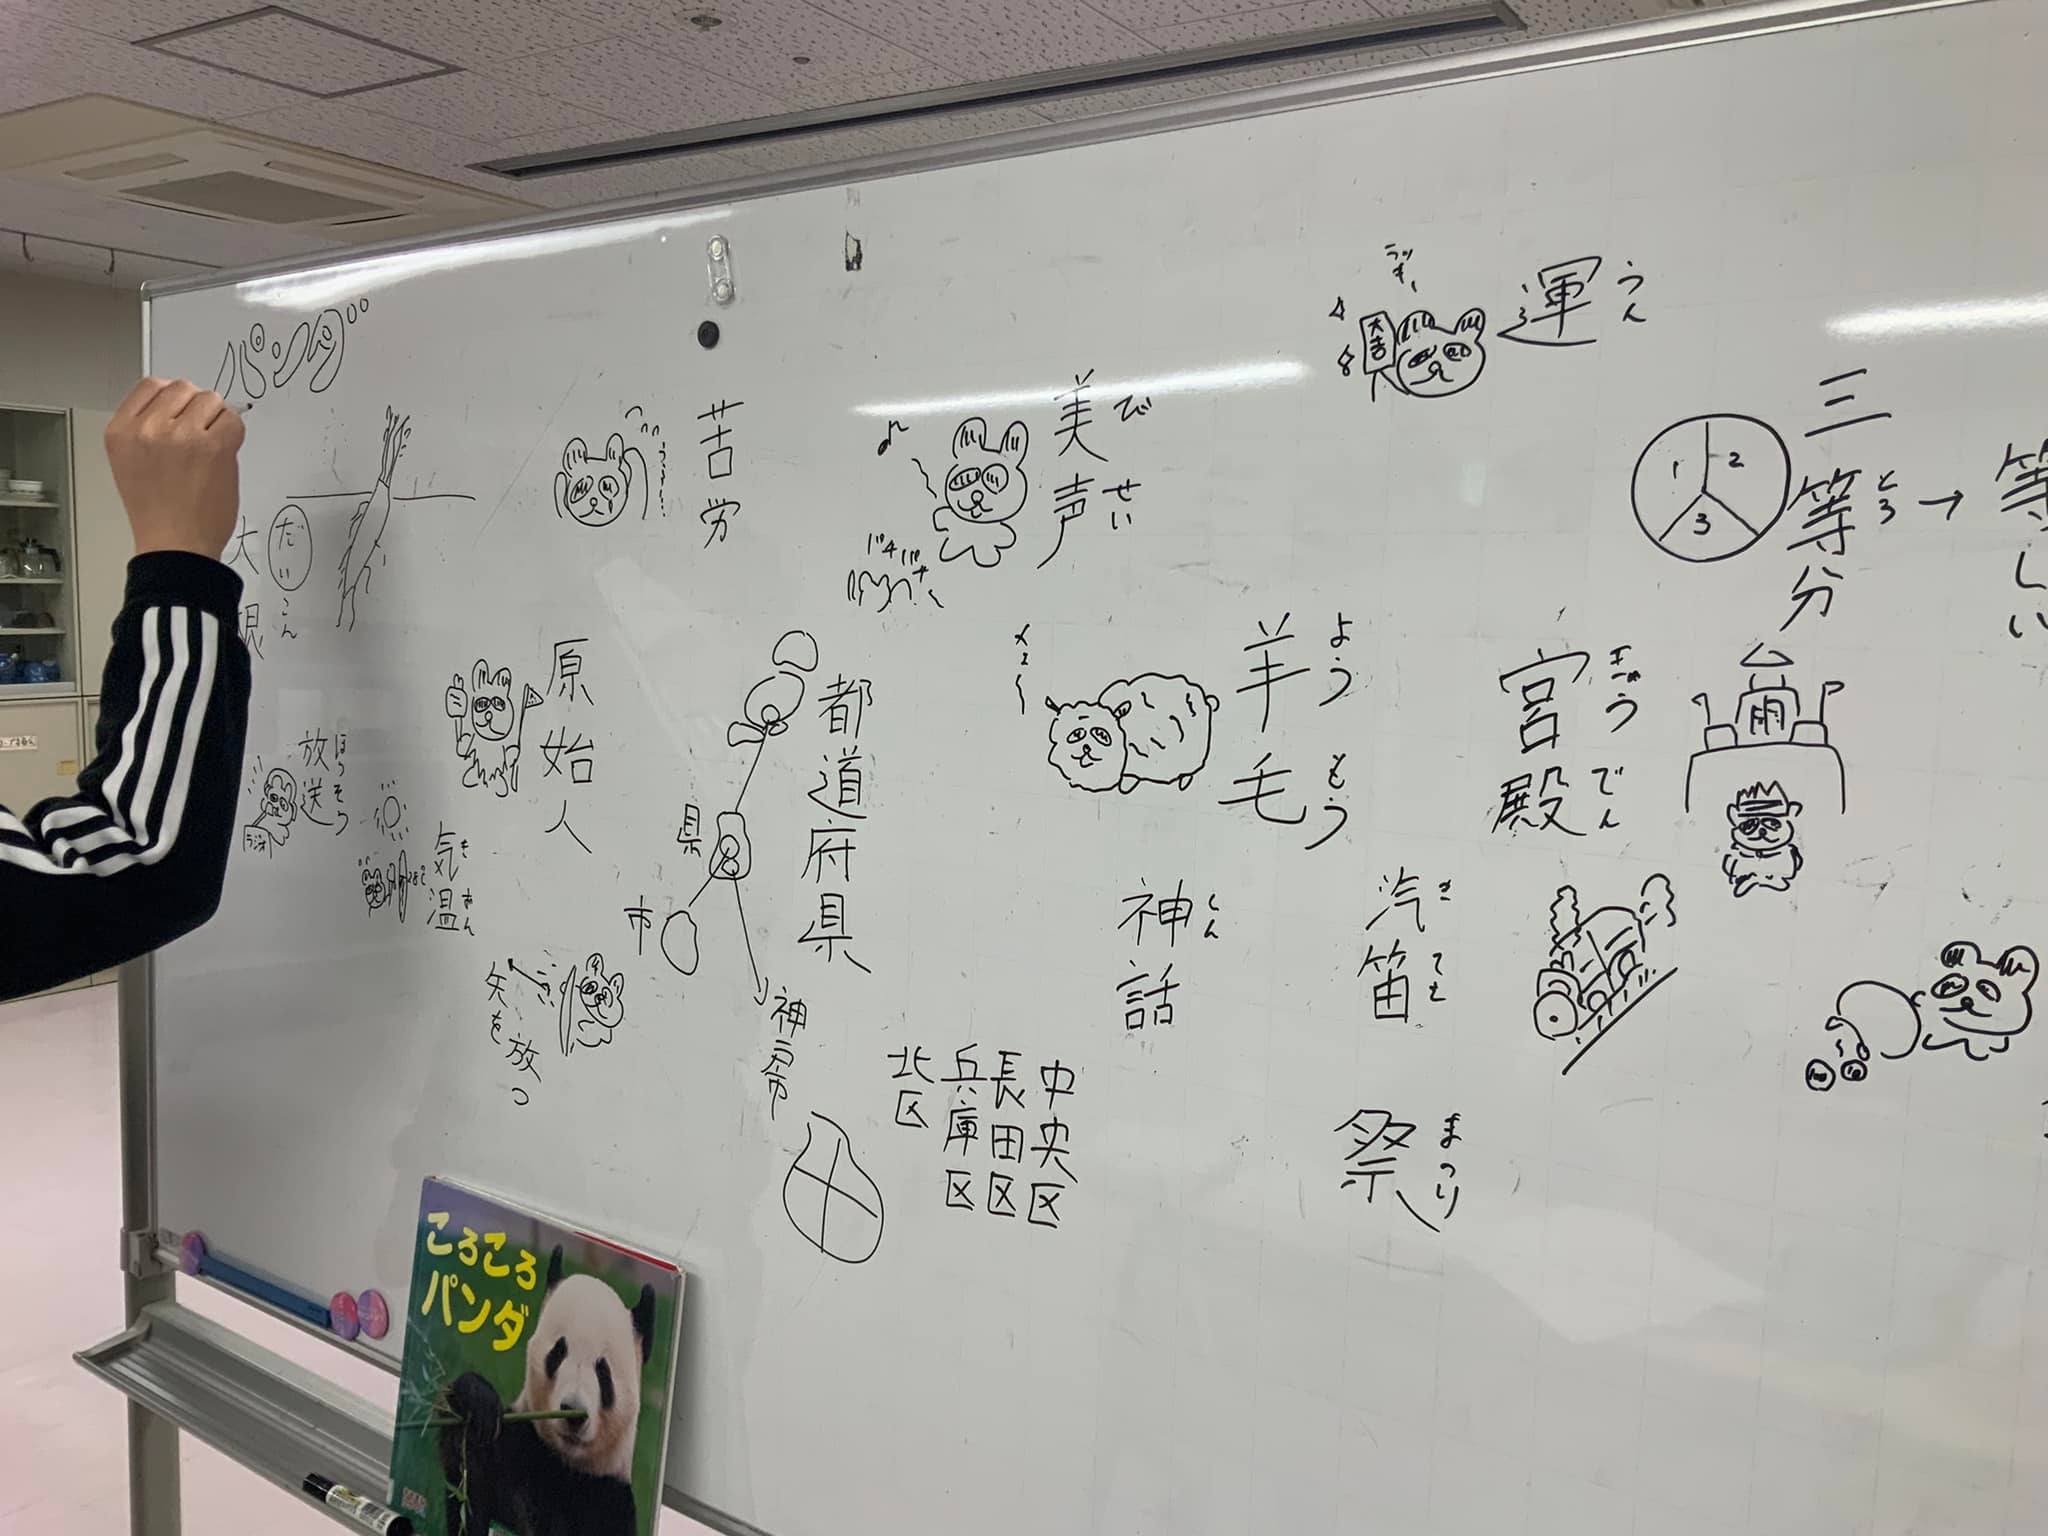 パンダ
大根
だいこん
苦労
美声
びせい
♪
パチパチ
ラッキー
大吉
運
うん
三等分
とう
→
等しい
1
2
3
放送
ほうそう
ラジオ
気温
きおん
28℃
原始人
矢を放つ
都道府県
県
市
神戸市
北区
兵庫区
長田区
中央区
メェ〜
羊毛
ようもう
宮殿
きゅうでん
神話
しん
汽笛
きてき
祭
まつり
ころころ
パンダ